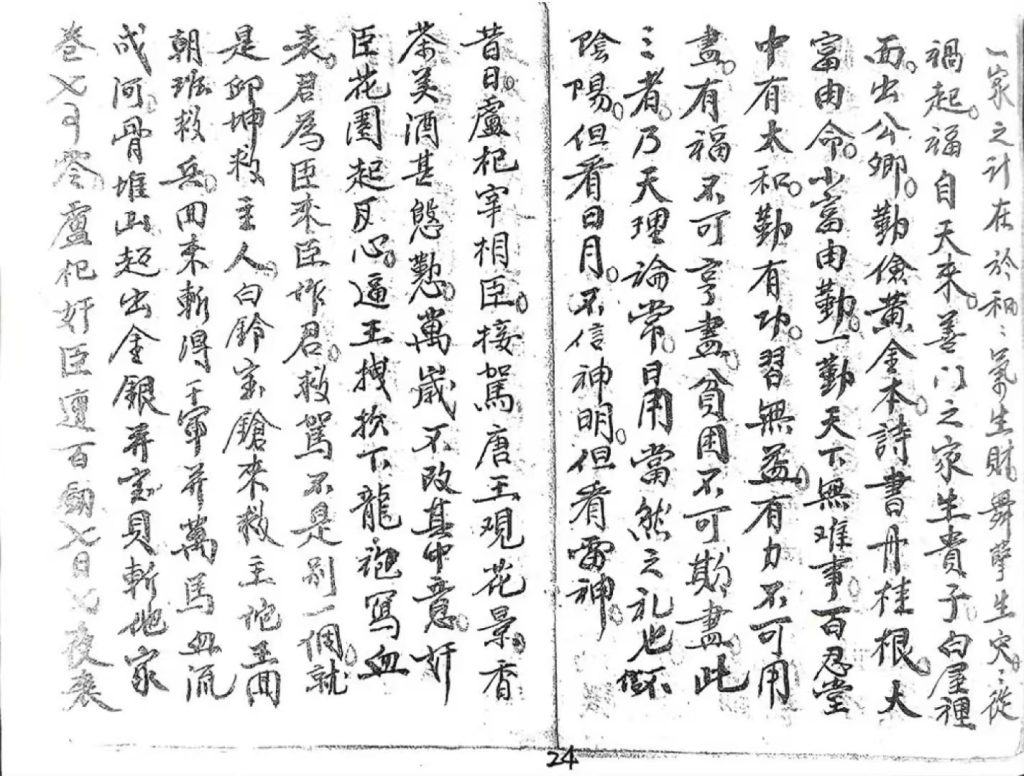 一家之計在於和〻氣生財舞孽生灾〻從
禍起。福自天來。善门之家生貴子。白屋裡
面出公卿。勤儉黄金本。詩書丹桂根。大
富由命。小富由勤。一勤天下無难事。百忍堂
中有太和。勤有功。習無益。有力不可用
盡。有福不可亨盡。貧困不可欺盡。此
三者。乃天理論常。日用當然之礼也。你不信
陰陽。但看日月。不信神明。但看雷神。
昔日。盧杞宰相臣。接駕唐王观花景。香
茶美酒甚慇懃。萬歲不改其中意。奸
臣花園起反心。逼王拽扒下龍袍冩血
表。君為臣來臣作君。救駕不是别一個。就
是邱坤救主人。白鈴宝鎗來救主他王回
朝班救兵。回來斬得千軍并萬馬血流
成河。骨堆山超出金銀并宝貝斬他家
卷七可灾盧杞奸臣還百釰七日七夜喪
24